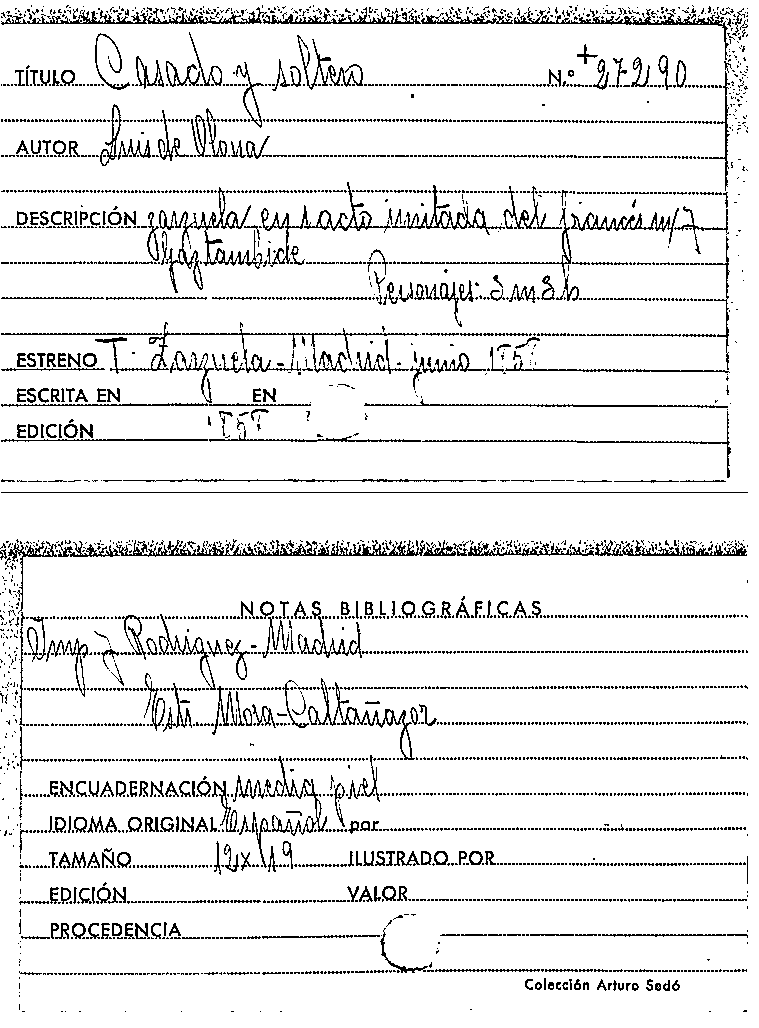 TÍTULO Casado y soltero N.º +27290
AUTOR Luis de Olona
DESCRIPCIÓN zarzuela en 1 acto imitada del francés m/
Gaztambide
Personajes: 3 m 3 h
ESTRENO T. Zarzuela - Madrid - junio 1858
ESCRITA EN EN
EDICIÓN 1858
NOTAS BIBLIOGRÁFICAS
Imp J Rodriguez - Madrid
Est: Mora - Caltañazor
ENCUADERNACIÓN media piel
IDIOMA ORIGINAL Español por
TAMAÑO 12x19 ILUSTRADO POR
EDICIÓN VALOR
PROCEDENCIA
Colección Arturo Sedó